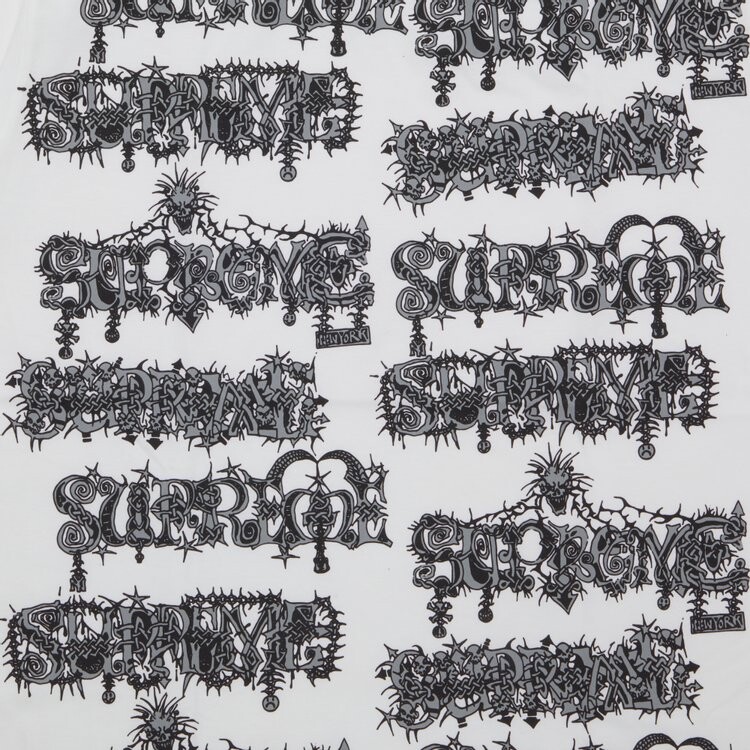 SUPREME
SUPREME
NEW YORK
SUPREME
SUPREME
NEW YORK
SUPREME
SUPREME
SUPREME
SUPREME
NEW YORK
SUPREME